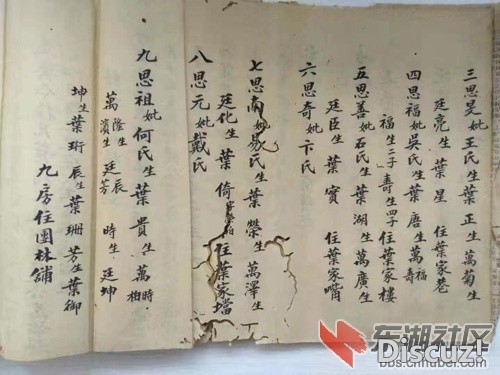 三思旻妣王氏生葉正生萬菊生
廷亮生葉星住葉家巷
四思福妣吳氏生葉唐生萬福壽
福生二子壽生四子住葉家樓
五思善妣石氏生葉湖生萬廣生
廷臣生葉實住葉家嘴
六思奇妣卞氏
七思南妣易氏生葉榮生萬澤生
廷化生葉倚住葉家壋
八思元妣戴氏
九思祖妣何氏生葉貴生萬時相
萬隆生廷辰濱生廷芳時生廷坤
坤生葉珩辰生葉珊芳生葉御
九房住團林舖
东湖社区
Discuz!
bbs.cnhubei.com